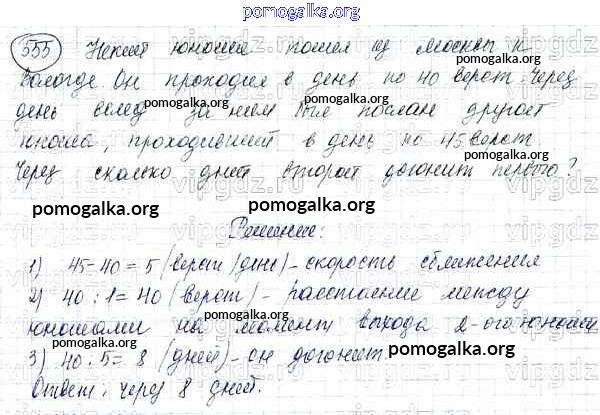 pomogalka.org
555 Некий юноша пошел из Москвы к
Вологде. Он проходил в день по 40 верст. Через
день вслед за ним был послан другой
юноша, проходивший в день по 45 верст.
Через сколько дней второй догонит первого?
pomogalka.org pomogalka.org
Решение:
1) 45-40=5 (верст/день) – скорость сближения
2) 40:1=40 (верст) – расстояние между
юношами на момент выхода 2-ого юноши
3) 40:5=8 (дней) – он догонит.
Ответ: через 8 дней.
pomogalka.org